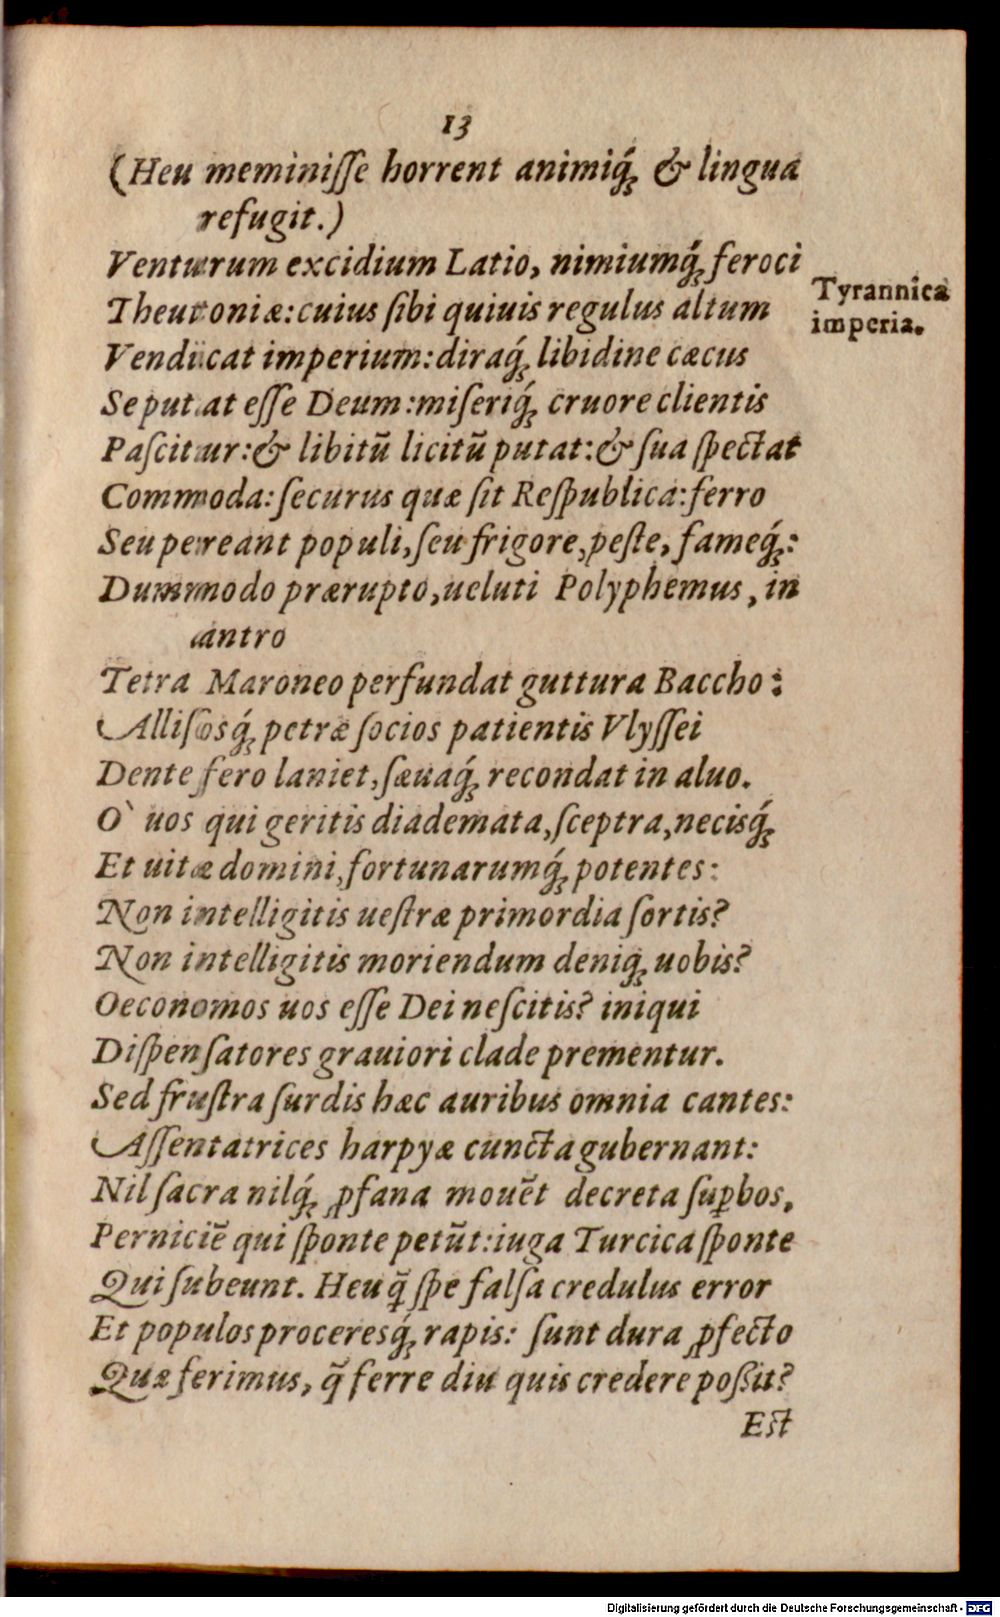 13
(Heu meminiſſe horrent animiq́ꝫ & lingua
refugit.)
Venturum excidium Latio, nimiumq́ꝫ feroci
Theutoniæ: cuius ſibi quiuis regulus altum
Tyrannica
imperia.
Vendicat imperium: diraq́ꝫ libidine cæcus
Se putat eſſe Deum: miſeriq́ꝫ cruore clientis
Paſcitur: & libitũ licitũ putat: & ſua ſpectat
Commoda: ſecurus quæ ſit Reſpublica: ferro
Seu pereant populi, ſeu frigore, peſte, fameq́ꝫ:
Dummodo prærupto, ueluti Polyphemus, in
antro
Tetra Maroneo perfundat guttura Baccho:
Alliſosq́ꝫ petræ ſocios patientis Vlyſſei
Dente fero laniet, ſæuaq́ꝫ recondat in aluo.
Ò uos qui geritis diademata, ſceptra, necisq́ꝫ
Et uitæ domini, fortunarumq́ꝫ potentes:
Non intelligitis ueſtræ primordia ſortis?
Non intelligitis moriendum deniq́ꝫ uobis?
Oeconomos uos eſſe Dei neſcitis? iniqui
Diſpenſatores grauiori clade prementur.
Sed fruſtra ſurdis hæc auribus omnia cantes:
Aſſentatrices harpyæ cuncta gubernant:
Nil ſacra nilq́ꝫ ꝓfana mouẽt decreta ſuꝑbos,
Perniciẽ qui ſponte petũt: iuga Turcica ſponte
Qui ſubeunt. Heu q̃ ſpe falſa credulus error
Et populos proceresq́ꝫ rapis: ſunt dura ꝓfecto
Quæ ferimus, q̃ ferre diu quis credere poßit?
Eſt
Digitalisierung gefördert durch die Deutsche Forschungsgemeinschaft - DFG